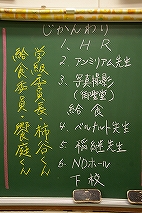 じかんわり
1. HR
2. アンミリアム先生
3. 写真撮影
(御聖堂)
給食
4. ベルナルト先生
5. 稲継先生
6. NDホール
下校
学級委員長・柿谷くん
給食委員・饗庭くん